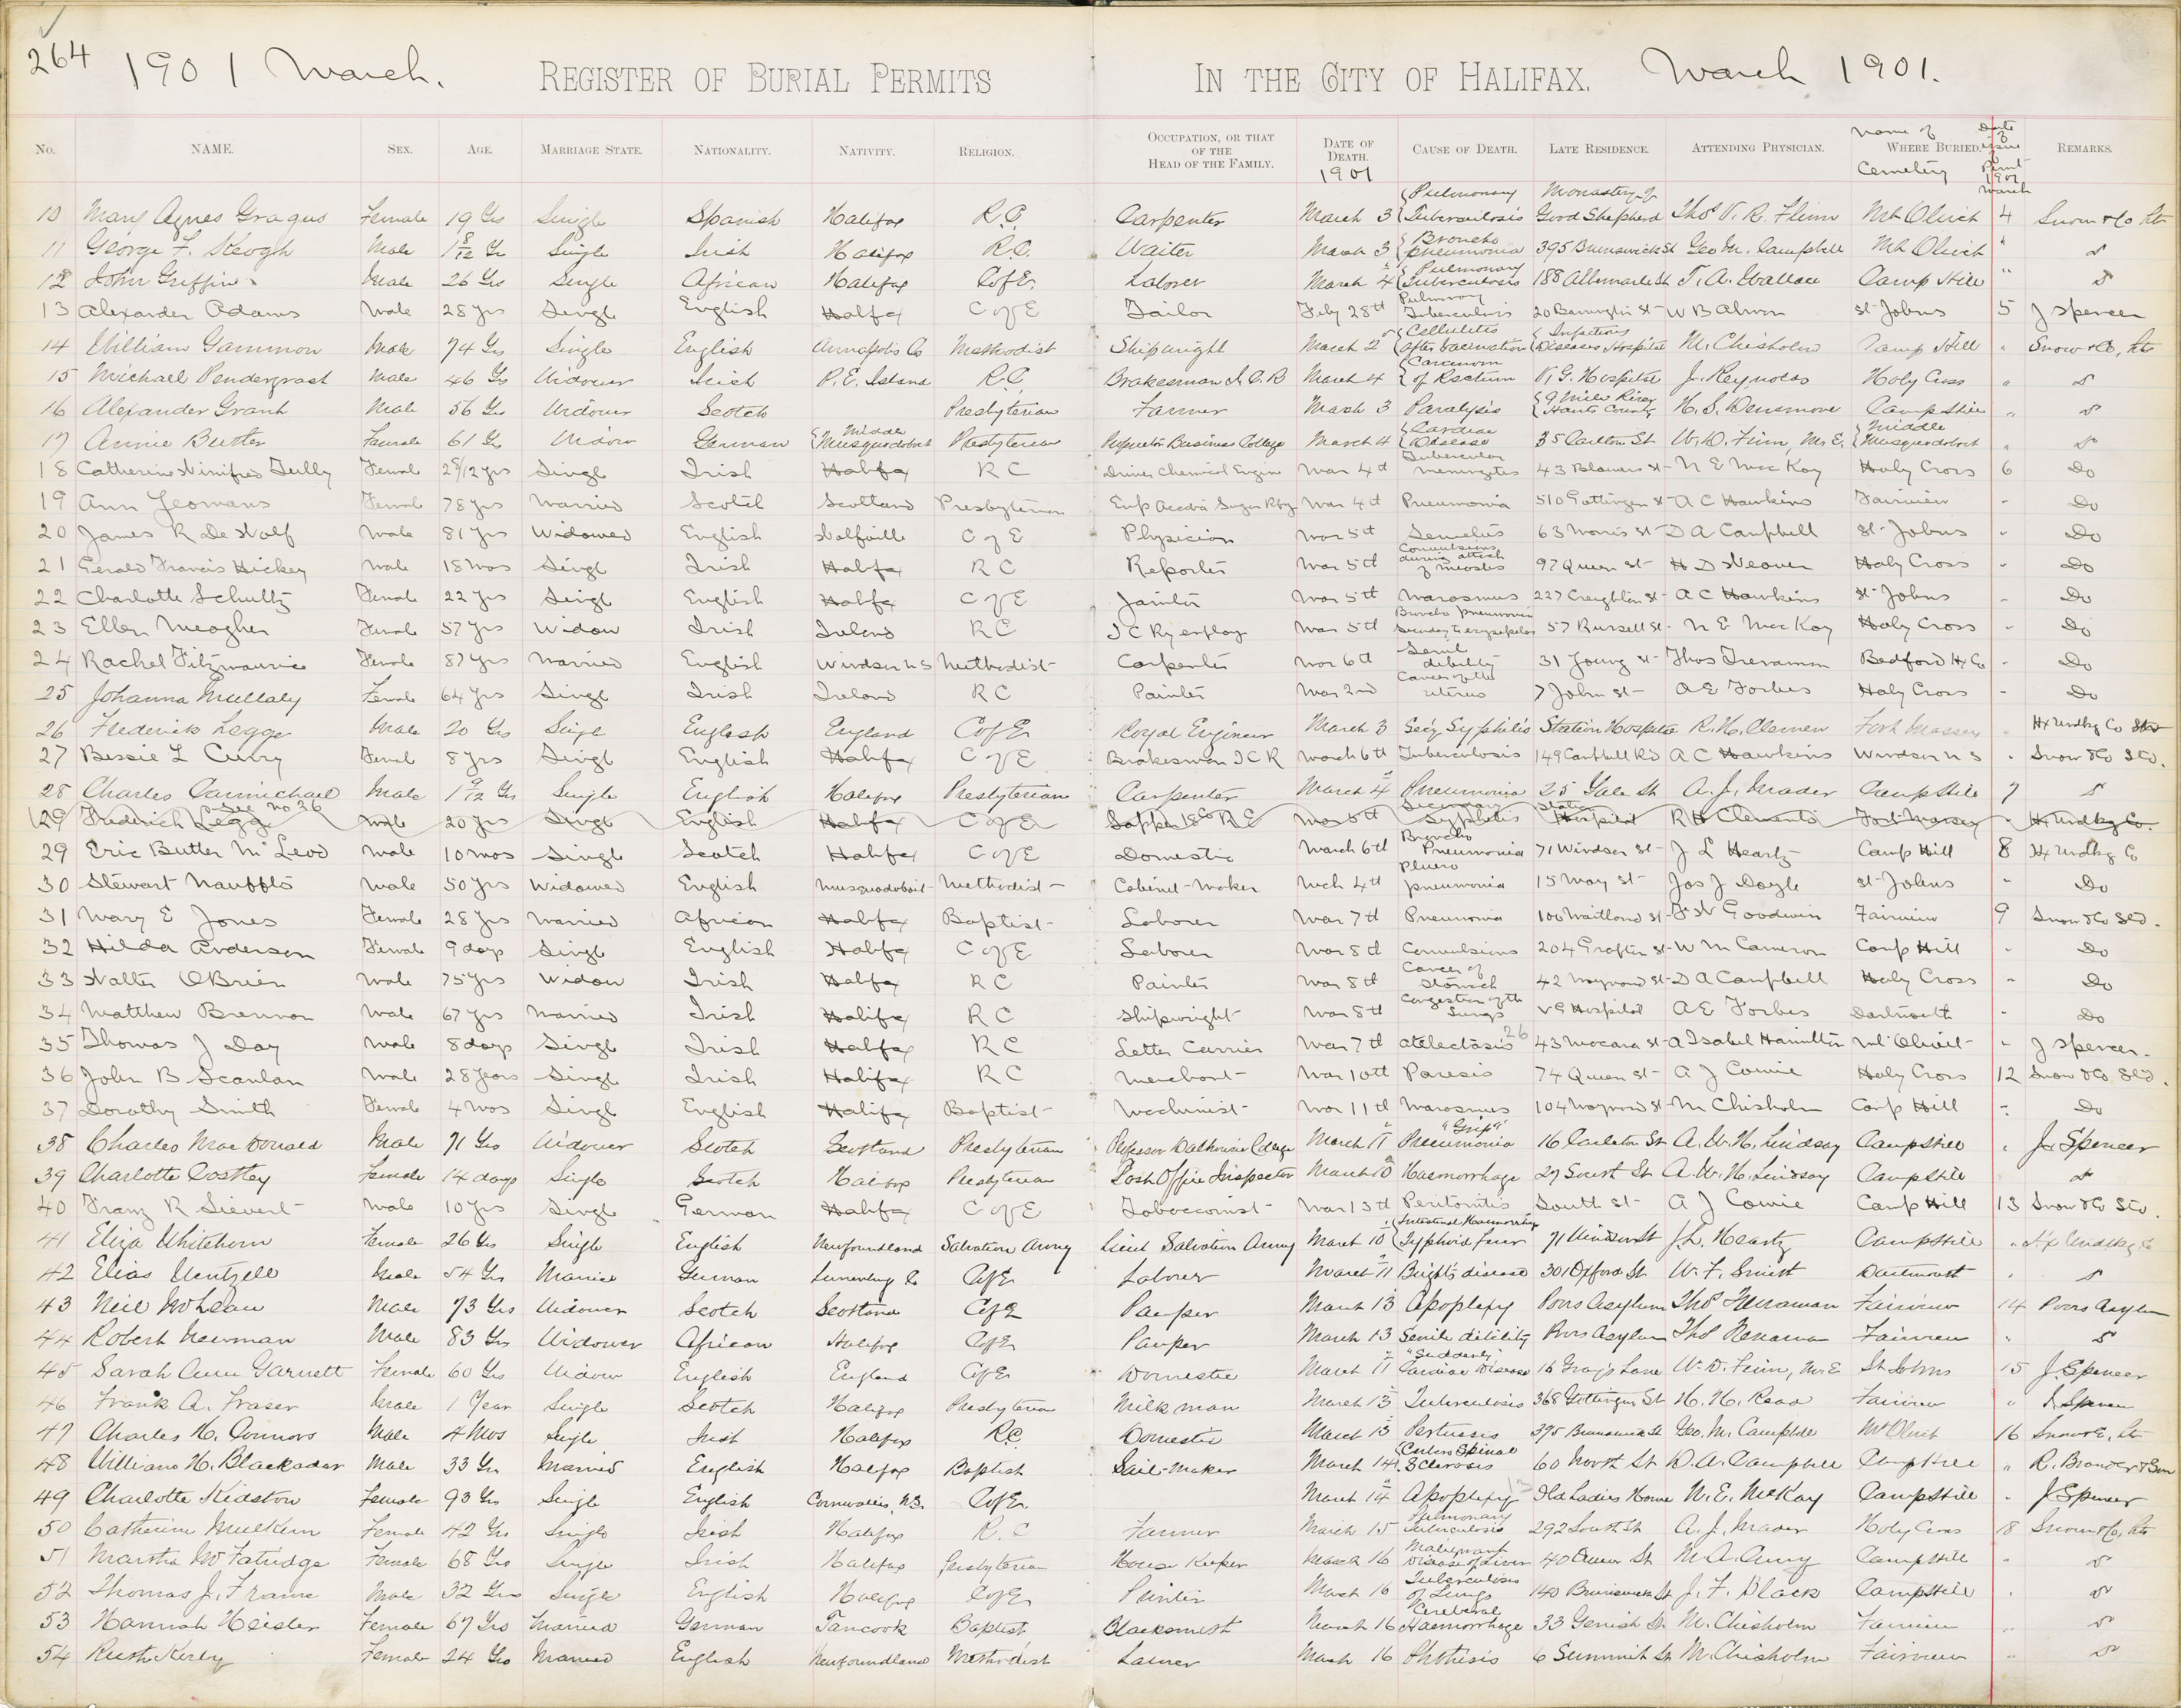 264 1901 March. REGISTER OF BURIAL PERMITS IN THE CITY OF HALIFAX. March 1901.
No. NAME. SEX. AGE. MARRIAGE STATE. NATIONALITY. NATIVITY. RELIGION. OCCUPATION, OR THAT OF THE HEAD OF THE FAMILY. DATE OF DEATH. 1901 CAUSE OF DEATH. LATE RESIDENCE. ATTENDING PHYSICIAN. Name of WHERE BURIED. Cemetery Date of issue 1901 March REMARKS.
10 Mary Agnes Gragus Female 19 Yrs Single Spanish Halifax R.C. Carpenter March 3 Pulmonary Tuberculosis Monastery of Good Shepherd Thos V. R. Flinn Mt Olivet 4 Snow & Co
11 George F. Keogh Male 1 8/12 Yr Single Irish Halifax R.C. Waiter March 3 Broncho pneumonia 395 Brunswick St Geo M. Campbell Mt Olivet "
12 John Griffin Male 26 Yrs Single African Halifax C of E. Laborer March 4 Pulmonary Tuberculosis 188 Albemarle St T. A. Wallace Camp Hill "
13 Alexander Adams Male 28 yrs Single English Halifax C of E Tailor Feby 28th Pulmonary Tuberculosis 20 Barrington St W B Almon St Johns 5 J Spencer
14 William Gammon Male 74 Yrs Single English Annapolis Co Methodist Shipwright March 2 Cellulitis after vaccination Infectious Diseases Hospital M. Chisholm Camp Hill " Snow & Co,
15 Michael Pendergrast Male 46 Yrs Widower Irish P. E. Island R.C. Brakesman I. C. R March 4 Carcinoma of Rectum V. G. Hospital J. Reynolds Holy Cross "
16 Alexander Grant Male 56 Yrs Widower Scotch Presbyterian Farmer March 3 Paralysis 9 Mile River Hants County H. S. Densmore Camp Hill "
17 Annie Butter Female 61 Yrs Widow German Middle Musquodoboit Presbyterian Business College March 4 Cardiac Disease 35 Carlton St W. D. Finn, M.E. Middle Musquodoboit "
18 Catherine Winifred Tully Female 2 8/12 yrs Single Irish Halifax R C Driver Chemical Engine Mar 4th Tubercular meningitis 43 Blowers St N E MacKay Holy Cross 6 Do
19 Ann Yeomans Female 78 yrs Married Scotch Scotland Presbyterian Emp Acadia Sugar Rfy Mar 4th Pneumonia 510 Gottingen St A C Hawkins Fairview " Do
20 James R De Wolf Male 81 yrs Widowed English Wolfville C of E Physician Mar 5th 63 Morris St D A Campbell St Johns " Do
21 Gerald Francis Hickey Male 18 mos Singl Irish Halifax R C Reporter Mar 5th Convulsions during attack of measles 97 Queen St H D Weaver Holy Cross " Do
22 Charlotte Schultz Female 22 yrs Singl English Halifax C of E Janitor Mar 5th Marasmus 227 Creighton St A C Hawkins St Johns " Do
23 Ellen Meagher Female 57 yrs Widow Irish Ireland R C I C Ry employ Mar 5th Broncho pneumonia secondary to erysipelas 57 Russell St N E MacKay Holy Cross " Do
24 Rachel Fitzmaurice Female 87 yrs Married English Windsor N S Methodist Carpenter Mar 6th Senile debility 31 Young St Thos Trenaman Bedford Hx Co " Do
25 Johanna Mullaly Female 64 yrs Singl Irish Ireland R C Painter Mar 2nd Cancer of the uterus 7 John St A E Forbes Holy Cross " Do
26 Frederick Legge Male 20 Yrs Single English England C of E Royal Engineer March 3 Sec'y Syphilis Station Hospital R. H. Clemen Fort Massey " Hx Undkg Co
27 Bessie L Curry Female 8 yrs Singl English Halifax C of E Brakesman I C R March 6th Tuberculosis 149 Campbell Rd A C Hawkins Windsor N S " Snow & Co Ltd.
28 Charles Carmichael Male 1 9/12 Yrs Single English Halifax Presbyterian Carpenter March 4 Pneumonia 25 Yale St A. J. Mader Camp Hill 7
29 Frederick Legge See No 26 Male 20 yrs Singl English Halifax C of E Sapper 18 Co R E Mar 5th Secondary Syphilis Station Hospital R H Clements Fort Massey " Hx Undkg Co.
29 Eric Butter McLeod Male 10 mos Singl Scotch Halifax C of E Domestic March 6th Broncho Pneumonia 71 Windsor St J L Heartz Camp Hill 8 Hx Undkg Co
30 Stewart Nauffts Male 50 yrs Widowed English Musquodoboit Methodist Cabinet-Maker Mch 4th Pleuro pneumonia 15 May St Jos J Doyle St Johns " Do
31 Mary E Jones Female 28 yrs Married African Halifax Baptist Laborer Mar 7th Pneumonia 100 Maitland St F W Goodwin Fairview 9 Snow & Co Ltd.
32 Hilda Anderson Female 9 days Singl English Halifax C of E Laborer Mar 8th Convulsions 204 Grafton St W M Cameron Camp Hill " Do
33 Walter OBrien Male 75 yrs Widow Irish Halifax R C Painter Mar 8th Cancer of Stomach 42 Maynard St D A Campbell Holy Cross " Do
34 Matthew Brennan Male 67 yrs Married Irish Halifax R C Shipwright Mar 8th Congestion of the Lungs V G Hospital A E Forbes Dartmouth " Do
35 Thomas J Day Male 8 days Singl Irish Halifax R C Letter Carrier Mar 7th Atelectasis 26 43 Macara St A Isabel Hamilton Mt Olivet " J Spencer.
36 John B Scanlan Male 28 years Singl Irish Halifax R C Merchant Mar 10th Paresis 74 Queen St A J Cowie Holy Cross 12 Snow & Co Ltd.
37 Dorothy Smith Female 4 mos Singl English Halifax Baptist Machinist Mar 11th Marasmus 104 Maynard St M Chisholm Camp Hill " Do
38 Charles MacDonald Male 71 Yrs Widower Scotch Scotland Presbyterian Professor Dalhousie College March 11 "Grip" Pneumonia 16 Carleton St A. W. H. Lindsay Camp Hill " J Spencer
39 Charlotte Costley Female 14 days Single Scotch Halifax Presbyterian Post Office Inspector March 10 Haemorrhage 27 South St A. W. H. Lindsay Camp Hill
40 Franz R Sievert Male 10 yrs Singl German Halifax C of E Tobacconist Mar 13th Peritonitis South St A J Cowie Camp Hill 13 Snow & Co Ltd.
41 Eliza Whitehorn Female 26 Yrs Single English Newfoundland Salvation Army Lieut Salvation Army March 10 Intestinal Haemorrhage Typhoid Fever 71 Windsor St J. L. Heartz Camp Hill " Hx Undkg Co
42 Elias Wentzell Male 54 Yrs Married German Lunenburg Co C of E Laborer March 11 Bright's disease 301 Oxford St W. F. Smith Dartmouth "
43 Neil McLean Male 73 Yrs Widower Scotch Scotland C of E Pauper March 13 Apoplexy Poors Asylum Thos Trenaman Fairview 14 Poors Asylum
44 Robert Newman Male 83 Yrs Widower African Halifax C of E Pauper March 13 Senile debility Poors Asylum Thos Trenaman Fairview "
45 Sarah Ann Garnett Female 60 Yrs Widow English England C of E Domestic March 11 "Suddenly" Cardiac Disease 16 Gray's Lane W. D. Finn, M.E St Johns 15 J. Spencer
46 Frank A. Fraser Male 1 Year Single Scotch Halifax Presbyterian Milkman March 13 Tuberculosis 368 Gottingen St H. H. Read Fairview " J. Spencer
47 Charles H. Connors Male 4 Mos Single Irish Halifax R.C. Domestic March 13 Pertussis 395 Brunswick St Geo. M. Campbell Mt Olivet 16 Snow & Co,
48 William H. Blackadar Male 33 Yrs Married English Halifax Baptist Sail-Maker March 14 Spinal Sclerosis 60 North St D. A. Campbell Camp Hill " R. Brander & Son
49 Charlotte Kidston Female 93 Yrs Single English Cornwallis, N.S. C of E. March 14 Apoplexy Old Ladies Home N. E. McKay Camp Hill " J Spencer
50 Catherine Mulkern Female 42 Yrs Single Irish Halifax R. C Farmer March 15 Pulmonary Tuberculosis 292 South St A. J. Mader Holy Cross 18 Snow & Co,
51 Martha McFatridge Female 68 Yrs Single Irish Halifax Presbyterian House Keeper March 16 Malignant Disease of Liver 40 Queen St M. A. Curry Camp Hill "
52 Thomas J. Frame Male 32 Yrs Single English Halifax C of E Painter March 16 Tuberculosis of Lungs 140 Brunswick St J. F. Black Camp Hill "
53 Hannah Heisler Female 67 Yrs Married German Tancook Baptist Blacksmith March 16 Cerebral Haemorrhage 33 Gerrish St M. Chisholm Fairview "
54 Ruth Kerly Female 24 Yrs Married English Newfoundland Methodist March 16 Phthisis 6 Summit St M. Chisholm Fairview "